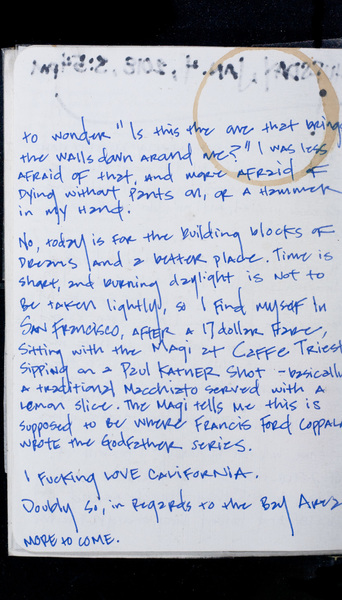 to wonder "Is this the one that brings
the walls down around me?" I was less
afraid of that, and more afraid of
dying without pants on, or a hammer
in my hand.
No, today is for the building blocks of
dreams and a better place. Time is
short, and burning daylight is not to
be taken lightly, so I find myself in
San Francisco, after a 17 dollar fare,
sitting with the Magi at Caffe Triest
sipping on a Paul Katner Shot - basically
a traditional Macchiato served with a
lemon slice. The Magi tells me this is
supposed to be where Francis Ford Coppala
wrote the Godfather series.
I fucking LOVE CALIFORNIA.
Doubly so, in regards to the Bay Area
MORE to COME.